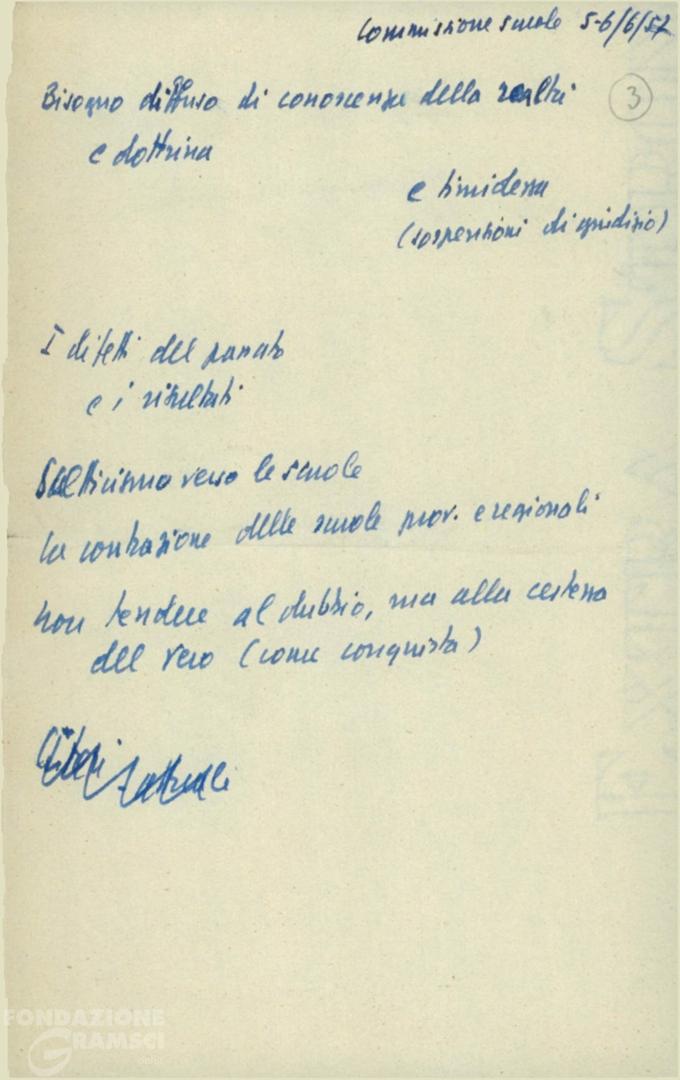 Commissione scuole 5-6/6/57
3
Bisogno diffuso di conoscenza della realtà
e dottrina
e timidezza
(sospensioni di giudizio)
I difetti del passato
e i risultati
Scetticismo verso le scuole
La contrazione delle scuole prov. e regionali
Non tendere al dubbio, ma alla certezza
del vero (come conquista)
FONDAZIONE
GRAMSCI